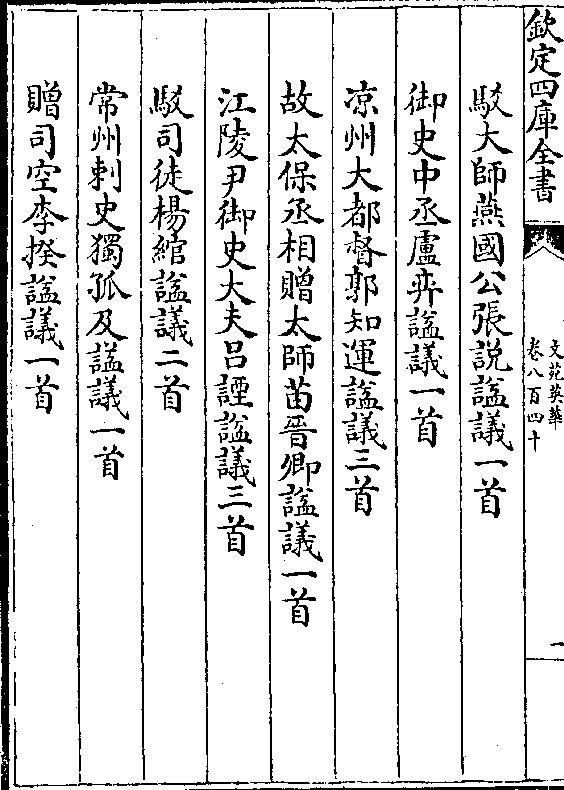 欽定四庫全書
文苑英華
卷八百四十
一
駁大師燕國公張説諡議一首
御史中丞盧弈諡議一首
凉州大都督郭知運諡議三首
故太保丞相贈太師苗晉卿諡議一首
江陵尹御史大夫呂諲諡議三首
駁司徒楊綰諡議二首
常州刺史獨孤及諡議一首
贈司空李揆諡議一首